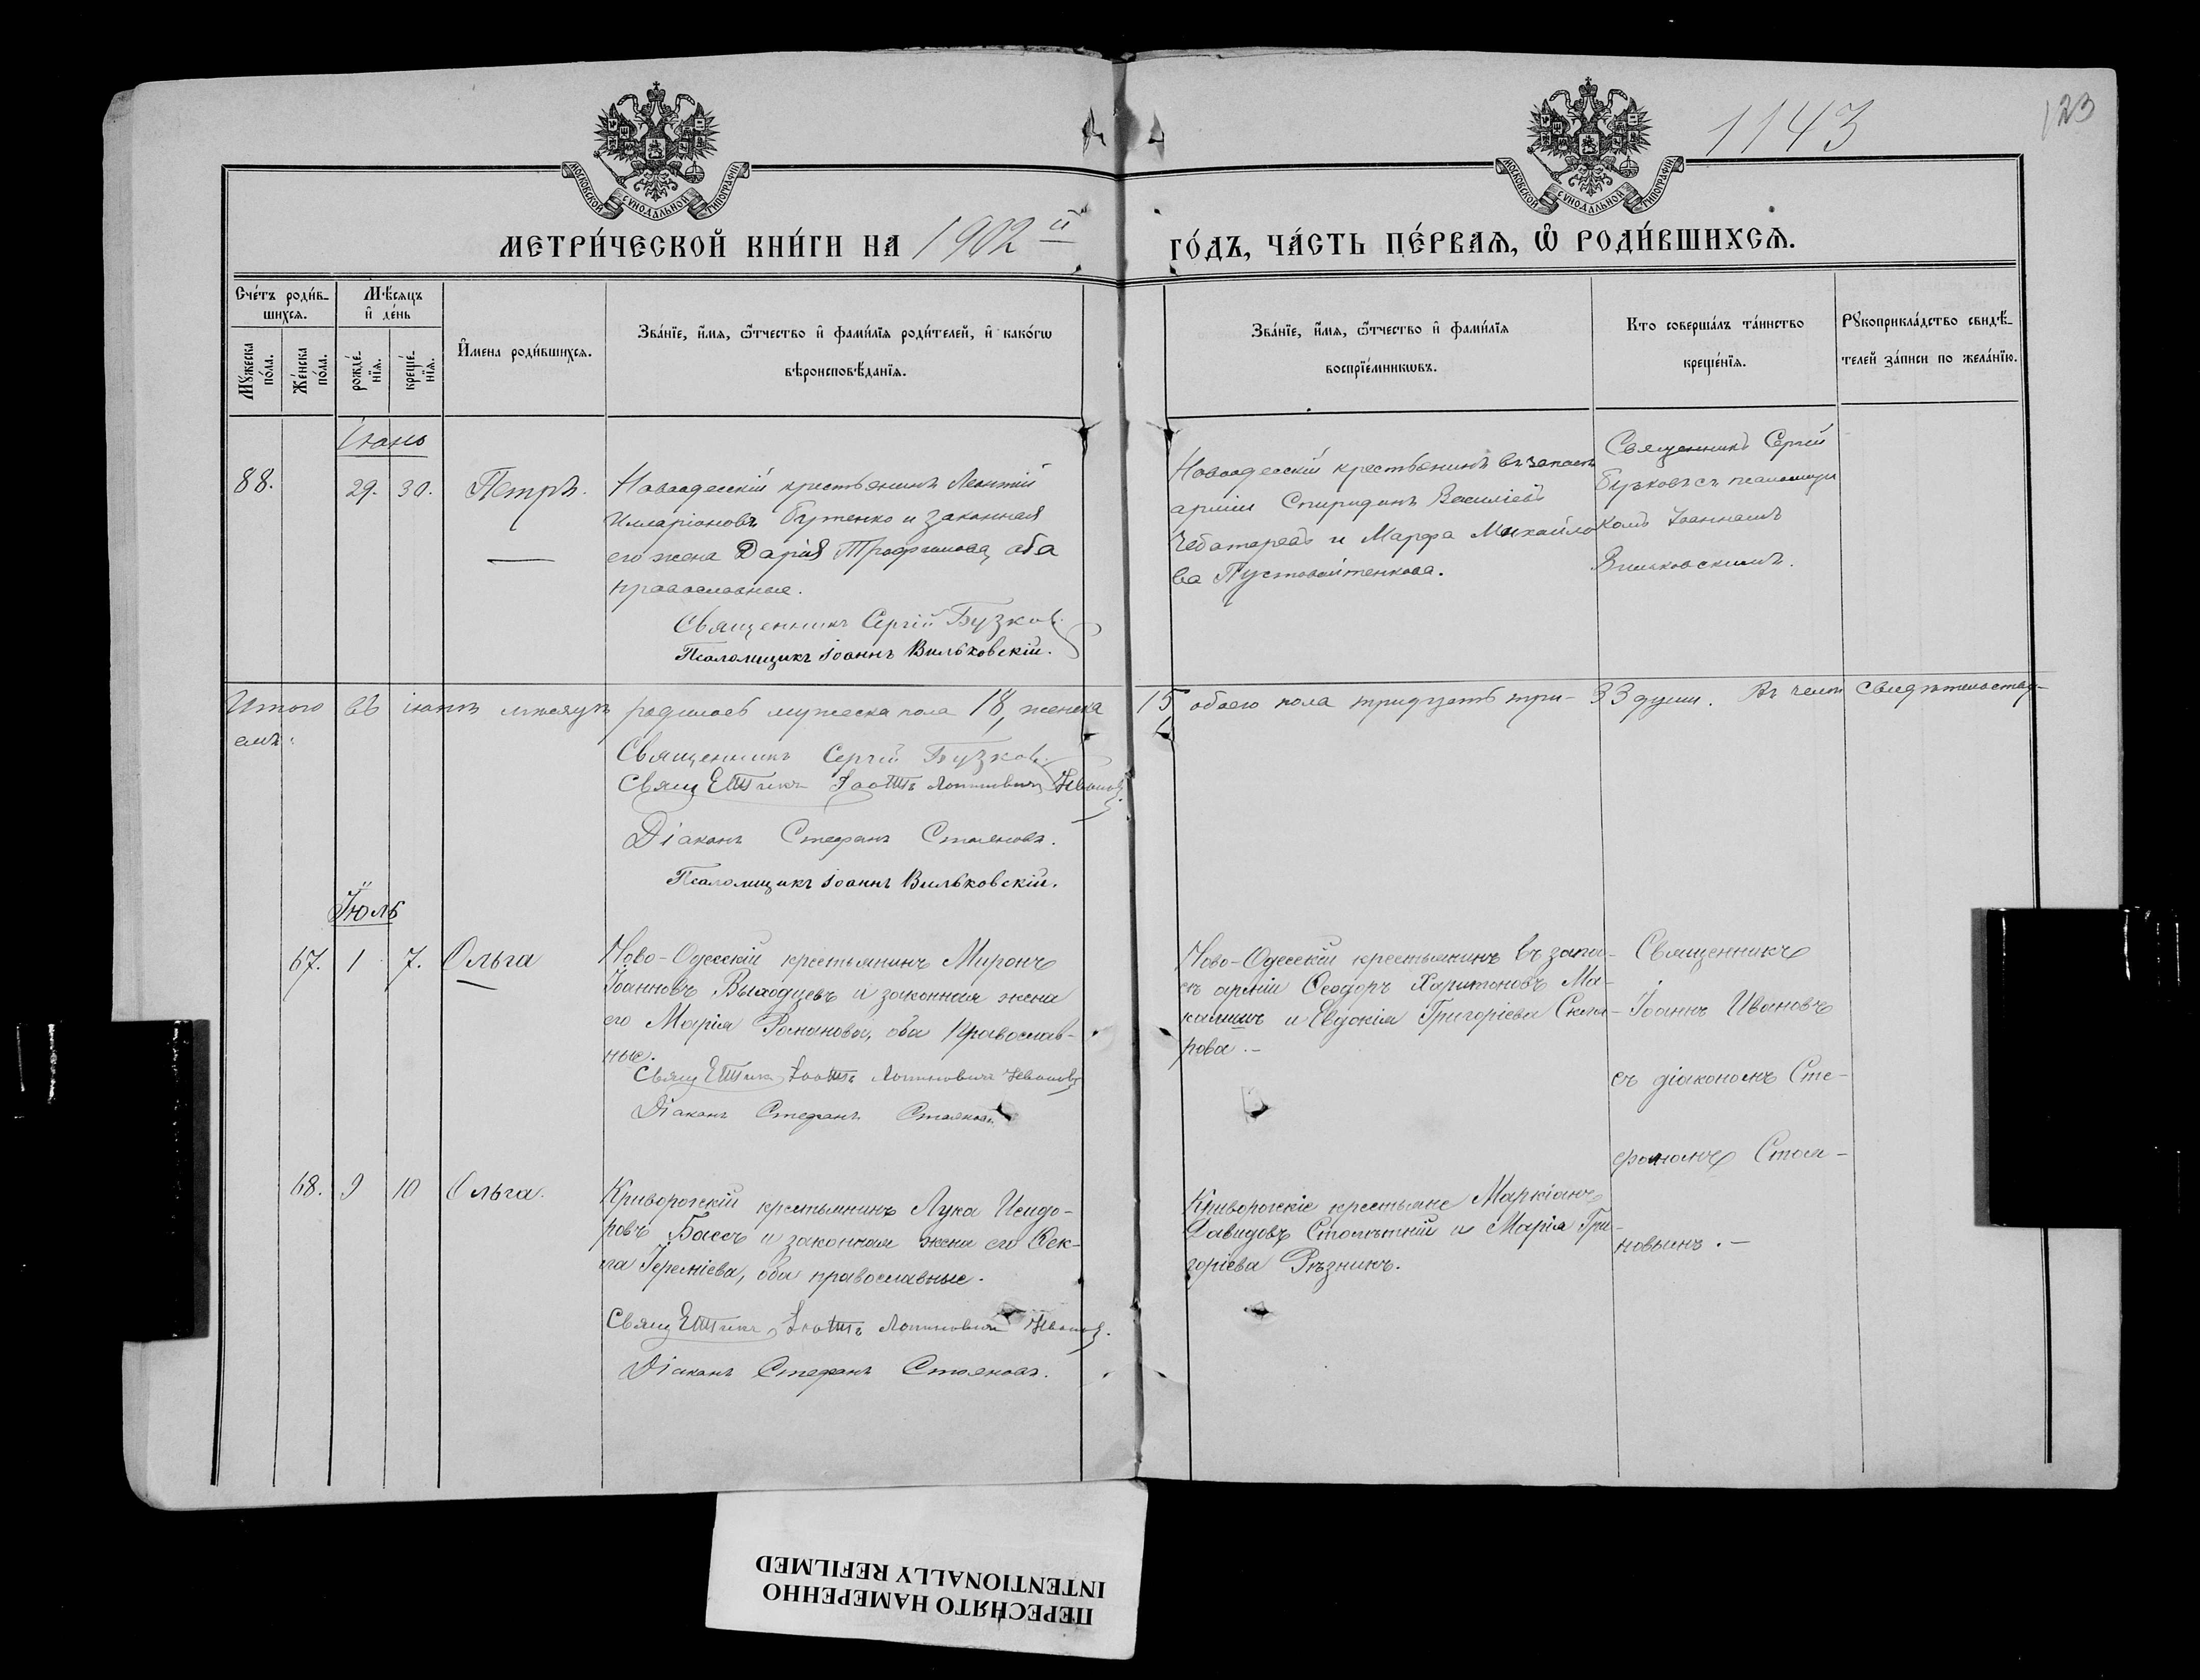 1143
123
МОСКОВСКОЙ СУНОДАЛЬНОЙ ТИПОГРАФІИ
МОСКОВСКОЙ СУНОДАЛЬНОЙ ТИПОГРАФІИ
МЕТРИ́ЧЕСКОЙ КНИ́ГИ НА 1902й ГО́ДЪ, ЧА́СТЬ ПЕ́РВАѦ, Ѡ РОДИ́ВШИХСѦ.
Сче́тъ роди́в-
шихсѧ.
Мꙋ́жеска по́ла.
Же́нска по́ла.
Мѣ́сяцъ
и҆ де́нь
рожде́-
нїѧ.
креще́-
нїѧ.
И҆мена роди́вшихсѧ.
Зва́нїе, и҆́мѧ, ѻ҆́тчество и҆ фами́лїѧ роди́телей, и҆ како́гѡ
вѣроисповѣ́данїѧ.
Зва́нїе, и҆́мѧ, ѻ҆́тчество и҆ фами́лїѧ
воспрїе́мникѡвъ.
Кто соверша́лъ та́инство
креще́нїѧ.
Рꙋкоприкла́дство свидѣ́-
телей за́писи по жела́нїю.
Іюнь
88.
29.
30.
Петръ.
Новоодесскій крестьянинъ Леонтій
Илларіоновъ Бутенко и законная
его жена Дарія Трофимова, оба
православные.
Священникъ Сергій Бузков.
Псаломщикъ Іоаннъ Вильковскій.
Новоодесскій крестьянинъ въ запасѣ
арміи Спиридонъ Василіевъ
Чеботаревъ и Марфа Михайло
ва Пустовойтенкова.
Священникъ Сергій
Бузковъ съ псаломщи
комъ Іоанномъ
Вильковскимъ.
Итого въ іюнѣ мѣсяцѣ родилось мужеска пола 18, женска 15 обоего пола тридцать три - 33 души. Въ чемъ свидѣтельству-
емъ:
Священникъ Сергій Бузков.
Священникъ Іоаннъ Ивановъ.
Діаконъ Стефанъ Стояновъ.
Псаломщикъ Іоаннъ Вильковскій.
Іюль
67.
1
7.
Ольга
Ново-Одесскій крестьянинъ Миронъ
Іоанновъ Выходцевъ и законная жена
его Марія Романова, оба православ-
ные.
Священникъ Іоаннъ Ивановъ
Діаконъ Стефанъ Стояновъ
Ново-Одесскій крестьянинъ въ запа-
сѣ арміи Ѳеодоръ Харитоновъ Ма-
и Евдокія Григоріева Скля-
рова. -
Священникъ
Іоаннъ Ивановъ
съ діакономъ Сте-
фаномъ Стоя-
новымъ. -
68.
9
10
Ольга.
Криворожскій крестьянинъ Лука Исидо-
ровъ Бассъ и законная жена его Ѳек-
ла Іереміева, оба православные.
Священникъ Іоаннъ Ивановъ.
Діаконъ Стефанъ Стояновъ.
Криворожскіе крестьяне Маркіанъ
Давидовъ Столѣтній и Марія Гри-
горіева Рѣзникъ.
ПЕРЕСНЯТО НАМЕРЕННО
INTENTIONALLY REFILMED